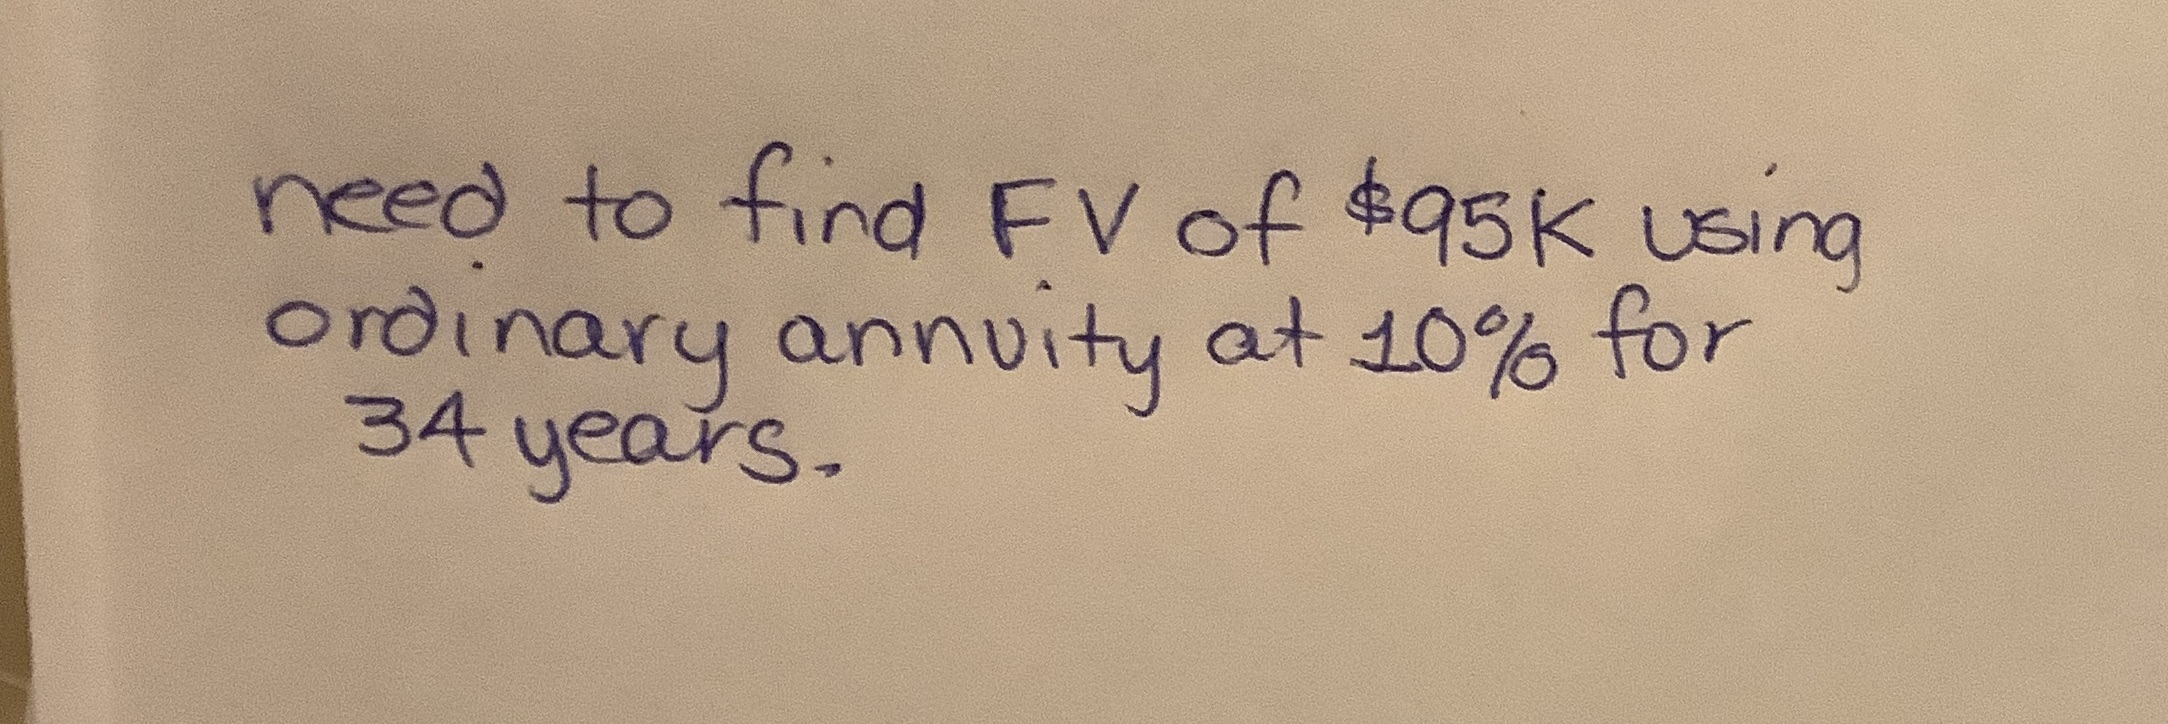 need to find FV of $95K using
ordinary annuity at 10% for
34 years.